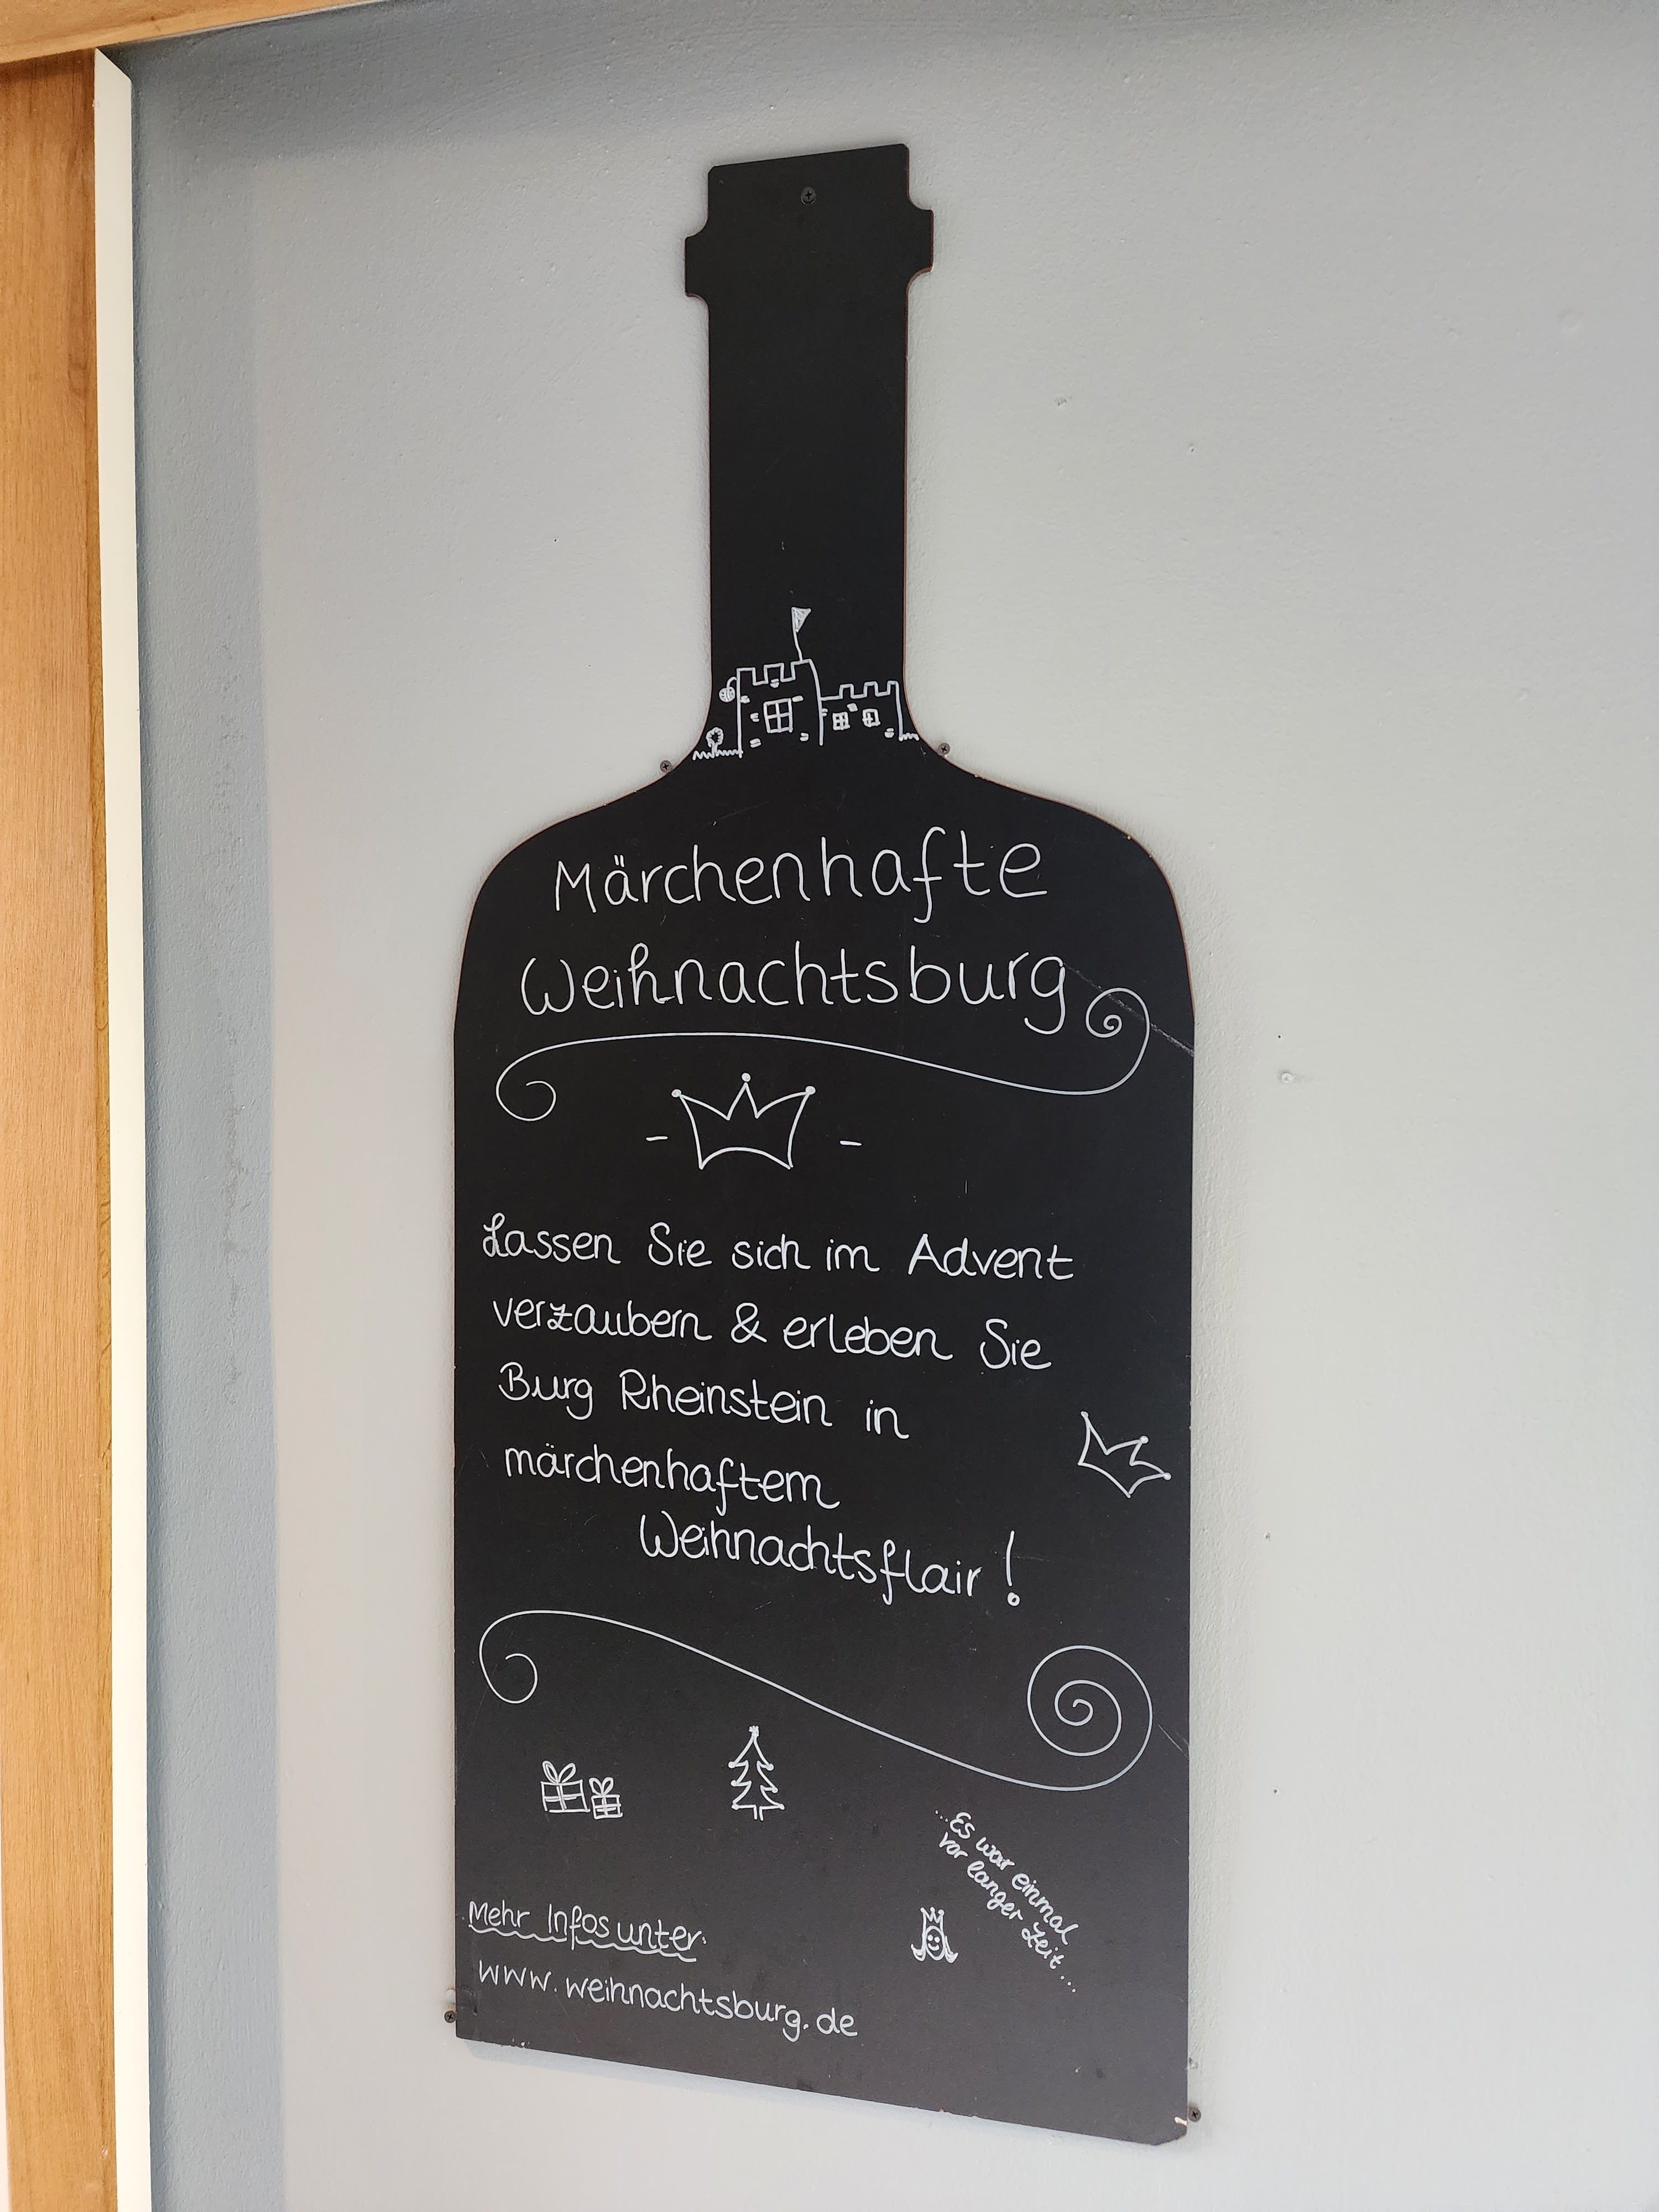 Märchenhafte
Weihnachtsburg
Lassen Sie sich im Advent
verzaubern & erleben Sie
Burg Rheinstein in
märchenhaftem
Weihnachtsflair!
...Es war einmal
vor langer Zeit...
Mehr Infos unter:
www.weihnachtsburg.de